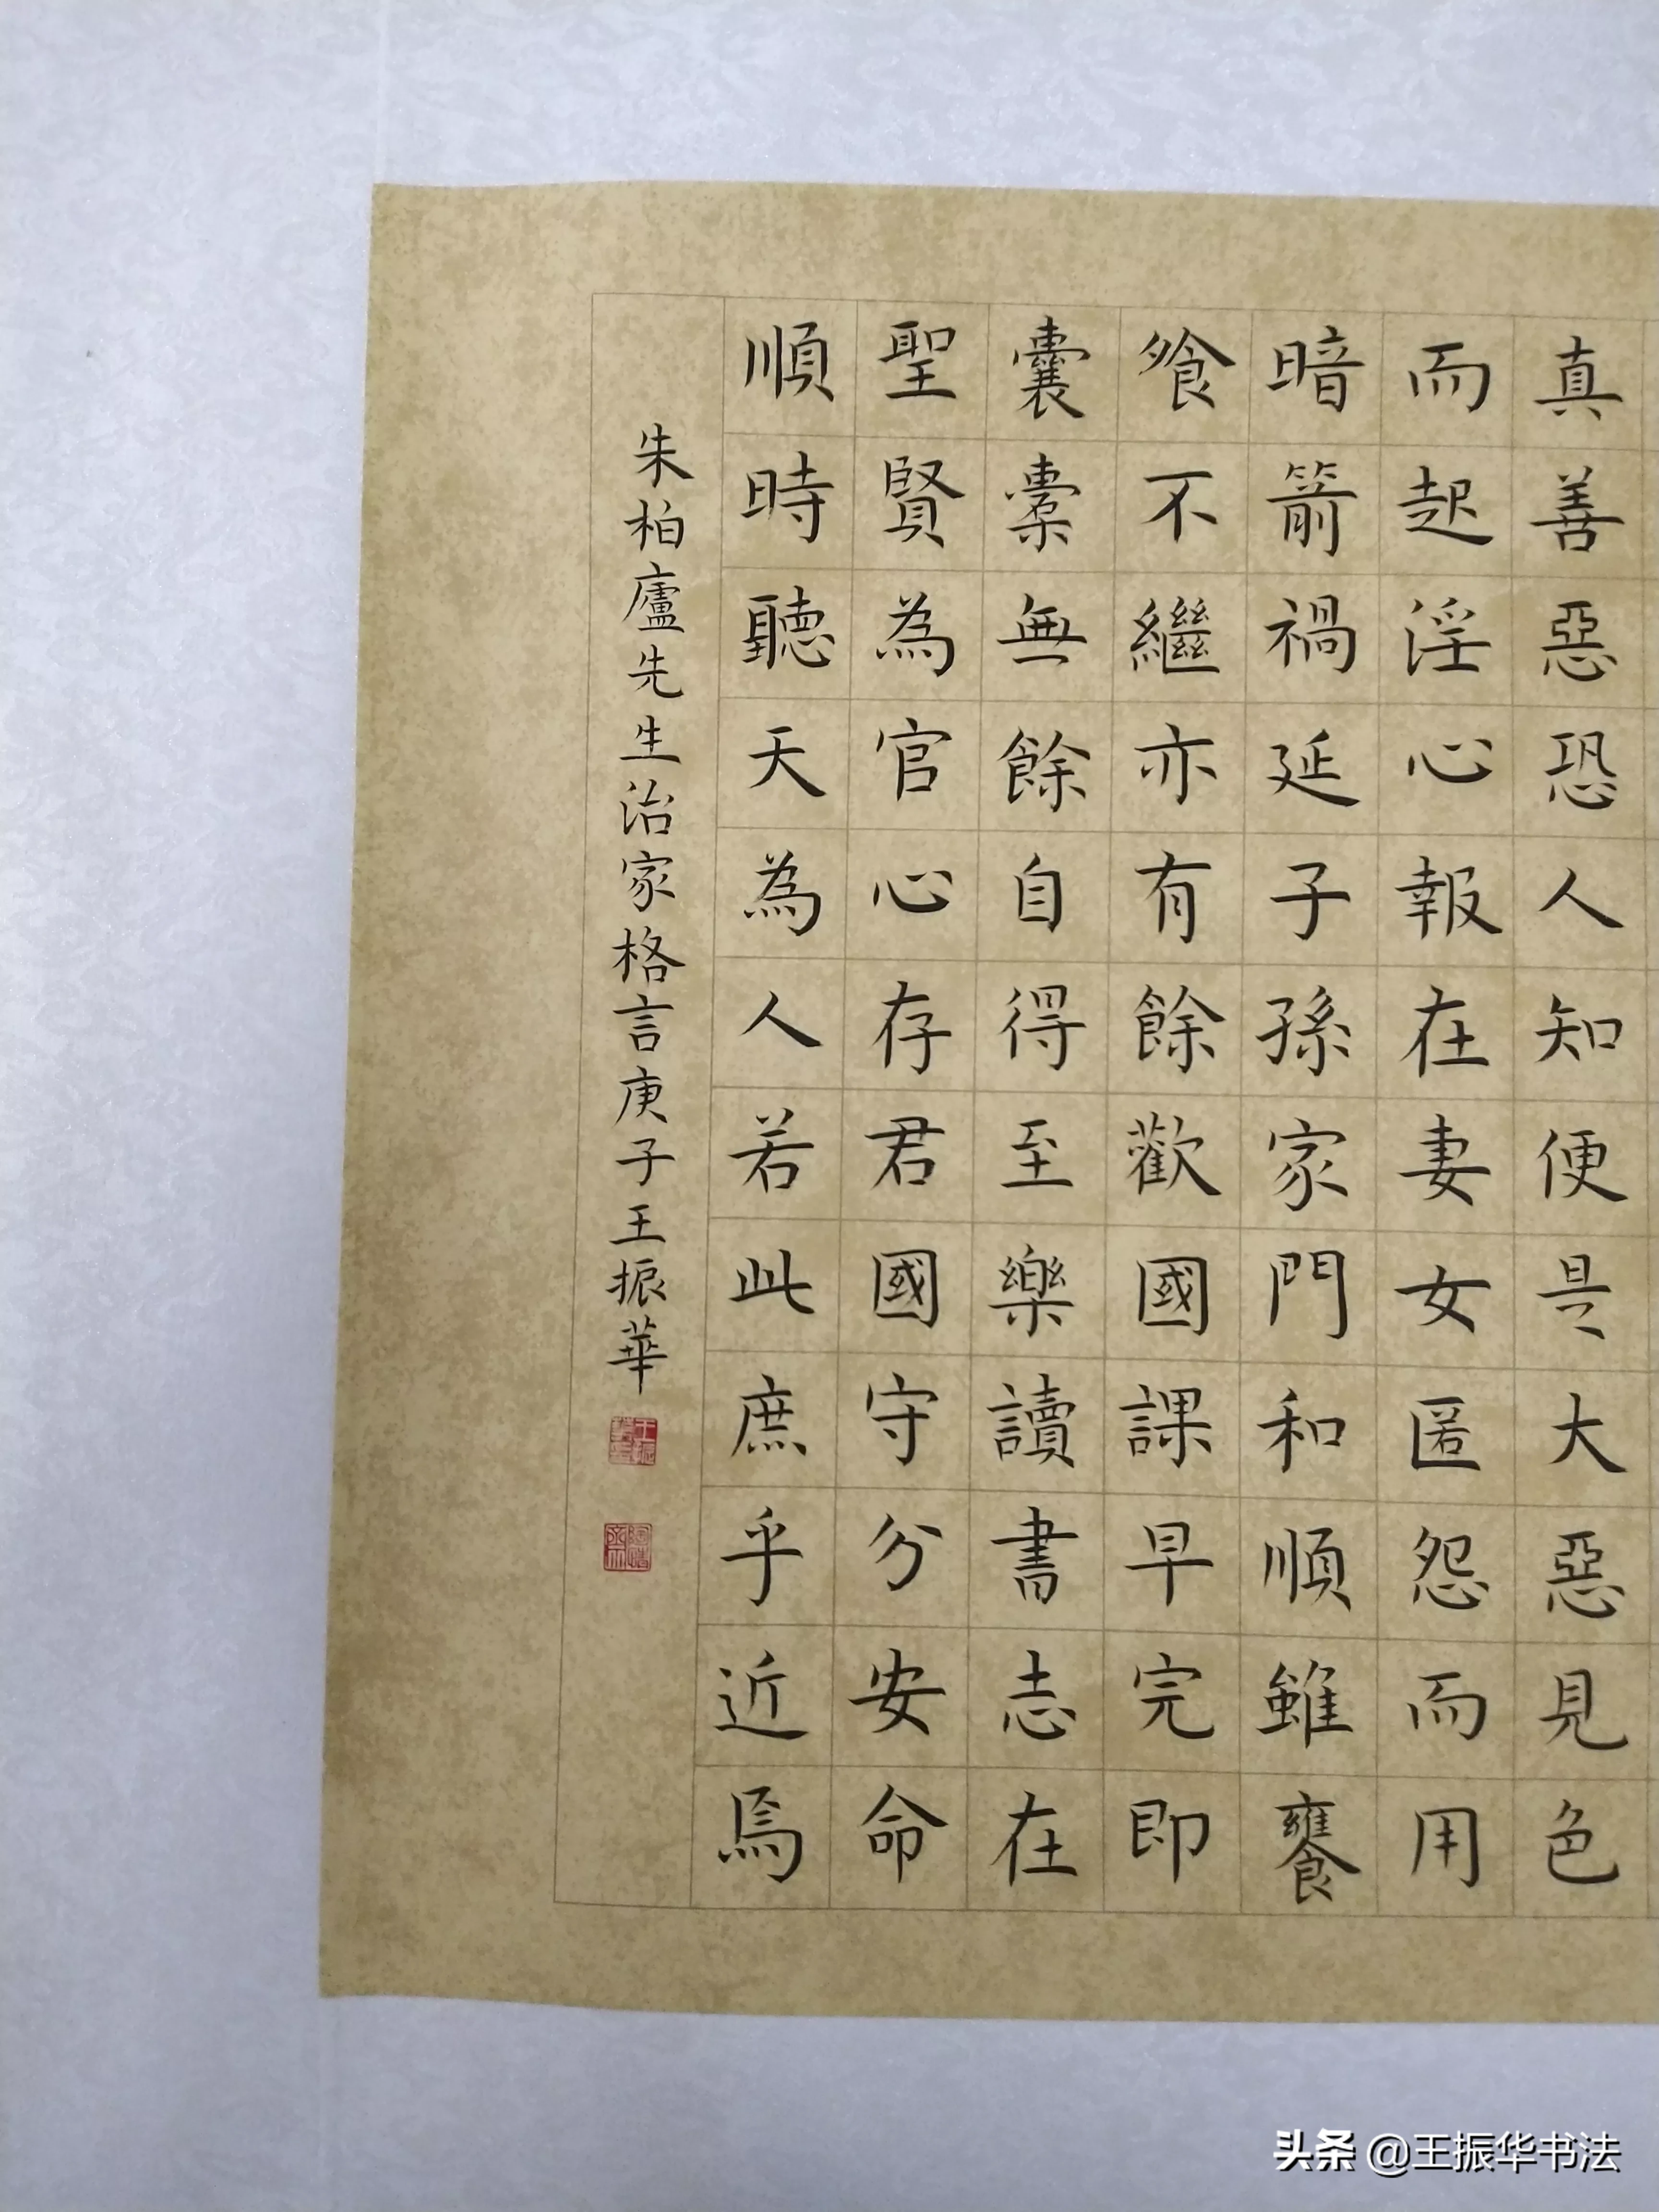 真善惡恐人知便是大惡見色
而起淫心報在妻女匿怨而用
暗箭禍延子孫家門和順雖饔
飧不繼亦有餘歡國課早完即
囊橐無餘自得至樂讀書志在
聖賢為官心存君國守分安命
順時聽天為人若此庶乎近焉
朱柏廬先生治家格言庚子王振華
头条 @王振华书法